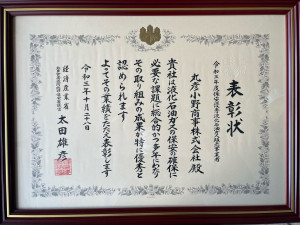 表彰状
令和三年度保安優良液化石油ガス販売事業者
丸彦小野商事株式会社 殿
貴社は液化石油ガスの保安の確保に
必要な課題に総合的かつ多年にわたり
その取り組みの成果が特に優秀と
認められます
よってその業績をたたえ表彰します
令和三年十月二十八日
経済産業省
太田雄彦